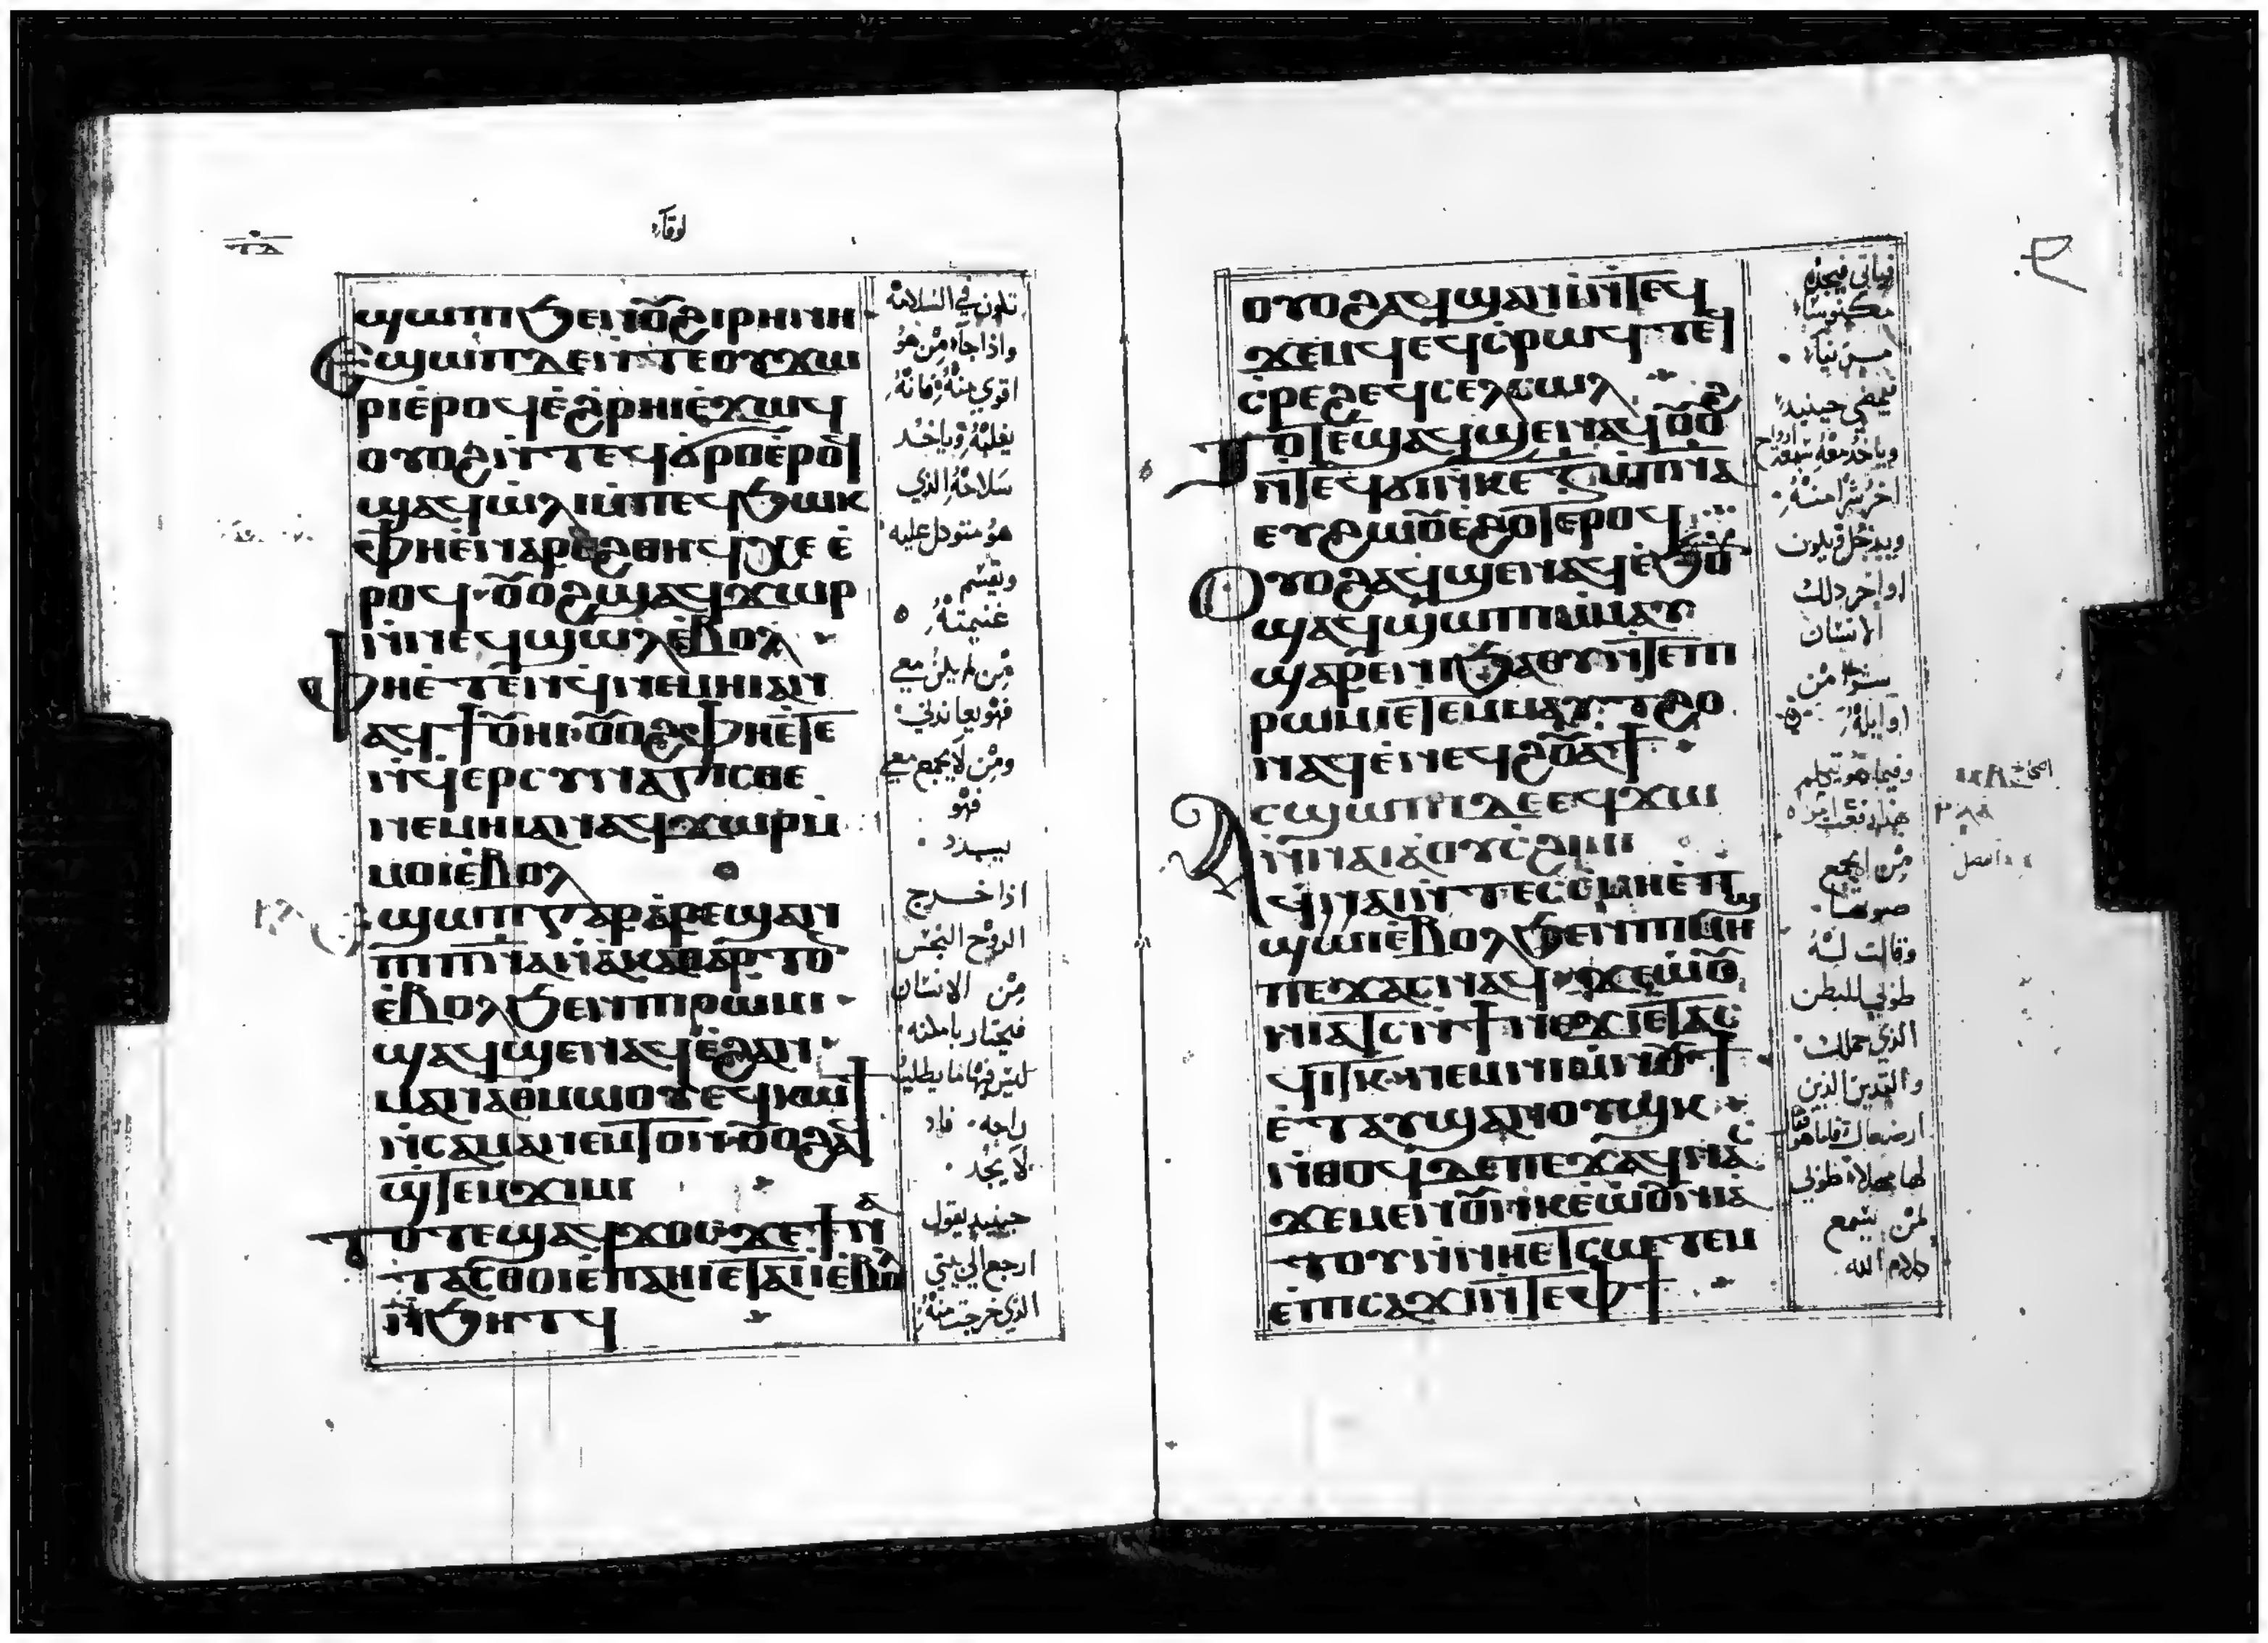 لوقا
ϣⲱⲡⲓ ϧⲉⲛ ⲟⲩϩⲓⲣⲏⲛⲏ
Ⲉϣⲱⲡ ⲇⲉ ⲛⲧⲉⲟⲩϫⲱ
ⲣⲓ ⲉⲣⲟϥ ⲉϩⲣⲏⲓ ⲉϫⲱϥ
ⲟⲩⲟϩ ⲛⲧⲉϥϭⲣⲟ ⲉⲣⲟϥ
ϣⲁϥⲱⲗⲓ ⲙⲡⲉϥϧⲱⲕ
ⲫⲏ ⲉⲛⲁⲣⲉ ϩⲑⲏϥ ⲭⲉ ⲉ
ⲣⲟϥ ⲟⲩⲟϩ ϣⲁϥϫⲱⲣ
ⲛⲛⲉϥϣⲱⲗ ⲉⲃⲟⲗ
Ⲫⲏ ⲉⲧⲉⲛϥⲛⲉⲙⲏⲓ ⲁⲛ
ⲁϥϯ ⲟⲩⲃⲏⲓ ⲟⲩⲟϩ ⲫⲏ ⲉⲧⲉ
ⲛϥⲉⲣⲥⲩⲛⲁⲅⲓⲥⲑⲉ
ⲛⲉⲙⲏⲓ ⲁⲛ ⲁϥϫⲱⲣ ⲙ
ⲙⲟⲓ ⲉⲃⲟⲗ
Ⲉϣⲱⲡ ⲅⲁⲣ ⲁⲣⲉϣⲁⲛ
ⲡⲓⲡⲛⲁ ⲛⲁⲕⲁⲑⲁⲣⲧⲟⲛ
ⲉⲃⲟⲗ ϧⲉⲛ ⲡⲓⲣⲱⲙⲓ
ϣⲁϥϣⲉⲛⲁϥ ⲉϩⲁⲛ
ⲙⲁⲛⲁⲑⲙⲱⲟⲩ ⲉϥⲕⲱϯ
ⲛⲥⲁ ⲙⲁⲛⲉⲙⲧⲟⲛ ⲟⲩⲟϩ ⲁϥ
ϣⲧⲉⲙϫⲓⲙⲓ
Ⲧⲟⲧⲉ ϣⲁϥϫⲟⲥ ϫⲉ ϯⲛⲁ
ⲧⲁⲥⲑⲟⲓ ⲉⲡⲁⲏⲓ ⲉⲧⲁⲓⲓ ⲉⲃⲟⲗ
ⲛϧⲏⲧϥ
تكون في السلامة
واذا جآء من هو
اقوي منه فانه
يغلبه وياخد
سلاحه الذي
هو متوكل عليه
ويقسم
غنيمته
من لم يكن معي
فهو يعاندني
ومن لا يجمع معي
فهو
يبدد
اذا خرج
الروح النجس
من الانسان
فيجتاز بامكنه
ليس فيها ما يطلب
راحه فاد
لا يجد
حينيد يقول
ارجع الي بيتي
الذي خرجت منه
ⲟⲩⲟϩ ⲁϥϣⲁⲛⲓ ⲛⲧⲉϥ
ϫⲉⲙϥ ⲉϥⲥⲣⲱϥⲧ ⲉϥ
ⲥⲣⲉϩ ⲉϥⲥⲉⲗⲥⲱⲗ
Ⲧⲟⲧⲉ ϣⲁϥϣⲉⲛⲁϥ ⲟⲩⲟϩ
ⲛⲧⲉϥϭⲓ ⲛⲕⲉ ⲍ ⲙⲡⲛⲁ
ⲉⲩϩⲱⲟⲩ ⲉϩⲟⲧⲉ ⲉⲣⲟϥ
Ⲟⲩⲟϩ ⲁϥϣⲉⲛⲁϥ ⲉϧⲟⲩⲛ
ϣⲁϥϣⲱⲡⲓ ⲙⲙⲁⲩ
ϣⲁⲣⲉ ⲛⲓϧⲁⲉⲩ ⲛⲧⲉ ⲡⲓ
ⲣⲱⲙⲓ ⲉⲧⲉⲙⲙⲁⲩ ⲧϩⲟ
ⲛⲁϥ ⲉⲛⲉϥϩⲟⲩⲁϯ
ⲁⲥϣⲱⲡⲓ ⲇⲉ ⲉϥϫⲱ
ⲛⲛⲁⲓ ⲁ ⲟⲩⲥϩⲓⲙⲓ
ϥⲁⲓ ⲛⲧⲉⲥⲥⲙⲏ ⲉⲡ
ϣⲱⲓ ⲉⲃⲟⲗ ϧⲉⲛ ⲡⲓⲙⲏϣ
ⲡⲉϫⲁⲥ ⲛⲁϥ ϫⲉ ⲱⲟⲩ
ⲛⲓⲁⲧⲥ ⲛϯⲛⲉϫⲓ ⲉⲧⲁⲥ
ϥⲓⲧⲕ ⲛⲉⲙ ⲛⲓⲙⲛⲟϯ
ⲉⲧⲁⲩϣⲁⲛⲟⲩϣⲕ
ⲛⲑⲟϥ ⲇⲉ ⲡⲉϫⲁϥ ⲛⲁⲥ
ϫⲉ ⲙⲉⲛⲟⲩⲛⲕⲉ ⲱⲟⲩⲛⲓⲁ
ⲧⲟⲩ ⲛⲛⲏ ⲉⲧⲥⲱⲧⲉⲙ
ⲉⲡⲓⲥⲁϫⲓ ⲛⲧⲉ ⲫϯ
فياتي فيجده
مكنوسا
مزينا
فيمضي حينيد
وياخذ معه سبعة ارواح
اخر شرا منه
ويدخل فيكون
اواخر ذلك
الانسان
سوا من
اوايله
وفيما هو يتكلم
بهذا رفعت امراه
من الجمع
صوتها
وقالت له
طوبي للبطن
الذي حملك
والتديين الذين
ارضعاك فاما هو فقال
لها مهلا طوبي
لمن يسمع
كلام الله